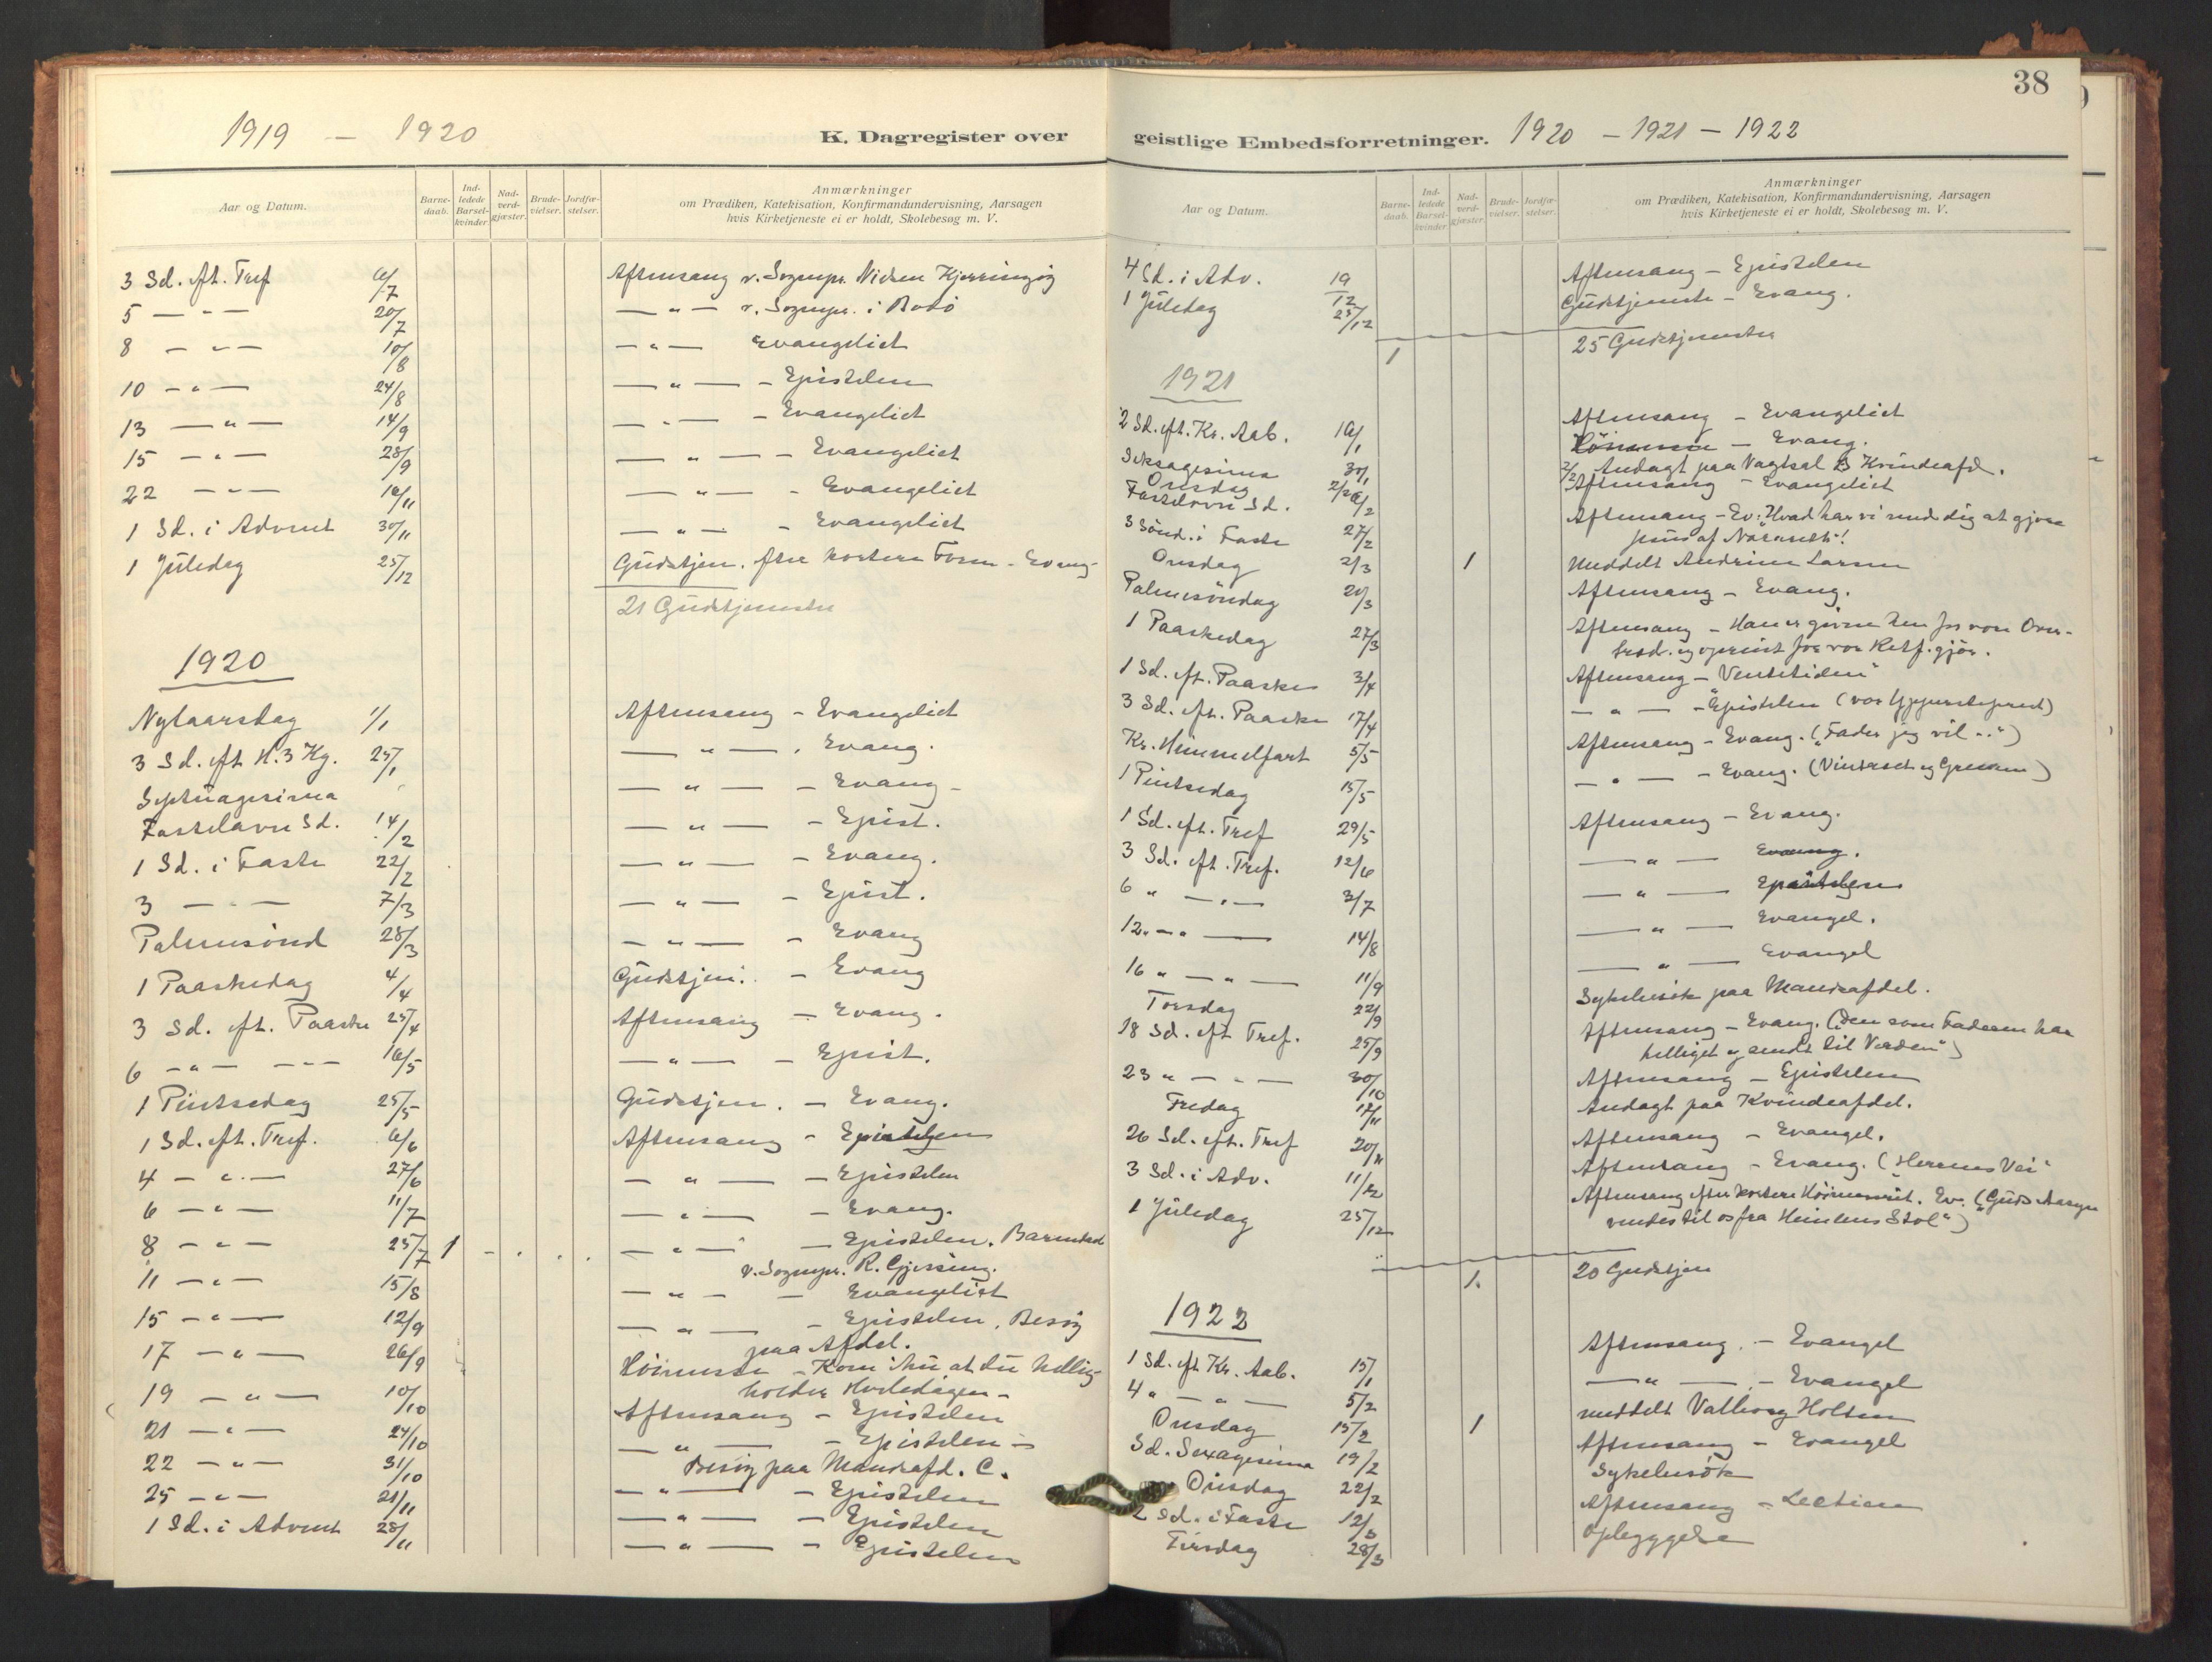 1919 — 1920
K. Dagregister over
Aar og Datum.
Barne-daab.
Ind-ledede Barsel-kvinder.
Nad-verd-gjæster.
Brude-vielser.
Jordfæ-stelser.
Anmærkninger
om Prædiken, Katekisation, Konfirmandundervisning, Aarsagen
hvis Kirketjeneste ei er holdt, Skolebesøg m. V.
3 Sd. eft. Tref 6/7 Aftensang v. Sognepr. Kjerringøy
5 — " — 20/7 — " — v. Sognepr. i Bodö
8 — " — 10/8 — " — Evangeliet
10 — " — 24/8 — " — - Epistelen
13 — " — 14/9 — " — - Evangeliet
15 — " — 28/9 — " — - Evangeliet
22 — " — 16/11 — " — - Evangeliet
1 Sd. i Advent 30/11 — " — - Evangeliet
1 Juledag 25/12 Gudstjen. efter kortere Form - Evang.
21 Gudstjenester
1920
Nytaarsdag 1/1 Aftensang - Evangeliet
3 Sd. eft H. 3 Kg. 25/1 — " — . Evang.
Septuagesima — " — - Evang -
Fastelavn Sd. 14/2 — " — - Epist.
1 Sd. i Faste 22/2 — " — - Evang.
3 — " — 7/3 — " — - Epist.
Palmesönd 28/3 — " — - Evang
1 Paaskedag 4/4 Gudstjen. - Evang
3 Sd. eft. Paaske 25/4 Aftensang - Evang.
6 — " — — 16/5 — " — - Epist.
1 Pintsedag 25/5 Gudstjen. - Evang.
1 Sd. eft. Tref. 6/6 Aftensang - Epistelen
4 — " — 27/6 — " — - Epistelen
6 — " — 11/7 — " — - Evang.
8 — " — 25/7 1 - . . . — " — - Epistelen. Barnedaab
v. Sognepr. R. Gjessing.
11 — " — 15/8 — " — - Evangeliet
15 — " — 12/9 — " — - Epistelen. Besög
paa Afdel.
17 — " — 26/9 Höimesse - Kom ihu at du hellig-
holder Hviledagen -
19 — " — 10/10 Aftensang - Epistelen
21 — " — 24/10 — " — - Epistelen -
22 — " — 31/10 Besög paa Mandsafd. C.
25 — " — 21/11 — " — - Epistelen
1 Sd. i Advent 28/11 — " — - Epistelen
— " — - Epistelen
38
geistlige Embedsforretninger. 1920 — 1921 — 1922
Aar og Datum.
Barne-daab.
Ind-ledede Barsel-kvinder.
Nad-verd-gjæster.
Brude-vielser.
Jordfæ-stelser.
Anmærkninger
om Prædiken, Katekisation, Konfirmandundervisning, Aarsagen
hvis Kirketjeneste ei er holdt, Skolebesøg m. V.
4 Sd. i Adv. 19/12 Aftensang - Epistelen
1 Juledag 25/12 Gudstjeneste - Evang.
1 25 Gudstjenester
1921
2 Sd. eft. Kr. Aab. 16/1 Aftensang - Evangeliet
Seksagesima 30/1 Höimesse - Evang.
Onsdag 2/2 2/2 Andagt paa Vagtsal B Kvindeafd.
Fastelavn Sd. 6/2 Aftensang - Evangeliet
3 Sönd. i Faste 27/2 Aftensang - Ev: "Hvad har vi med dig at gjøre
Jesus af Nasaret"!
Onsdag 2/3 1 Meddelt Andrine Larsen
Palmesöndag 20/3 Aftensang - Evang.
1 Paaskedag 27/3 Aftensang - Han er given hen for vore Over-
tred. og opreist for vor Retf.gjör.
1 Sd. eft. Paaske 3/4 Aftensang - "Ventetiden"
3 Sd. eft. Paaske 17/4 — " — - Epistelen (vor Ypperstepræst)
Kr. Himmelfart 5/5 Aftensang - Evang. ("Fader jeg vil ..")
1 Pintsedag 15/5 — " — - Evang. (Vintræet og Grenene)
1 Sd. eft. Tref 29/5 Aftensang - Evang.
3 Sd. eft. Tref. 12/6 — " — Evang.
6 " — " — 3/7 — " — Epistelen
12 " — " — 14/8 — " — Evangel.
16 " — " — 11/9 — " — Evangel
Torsdag 22/9 Sykebesök paa Mandsafdel.
18 Sd. eft Tref. 25/9 Aftensang - Evang. ("Den som Faderen har
helliget og sendt til Verden")
23 " — " — 30/10 Aftensang - Epistelen
Fredag Andagt paa Kvindeafdel.
26 Sd. eft. Tref 20/11 Aftensang - Evangel.
3 Sd. i Adv. 11/12 Aftensang - Evang. ("Herrens Vei"
1 Juledag 25/12 Aftensang efter kortere Höimesserit. Ev. ("Guds Aasyn
vendes til os fra Himlens Stol")
1. 20 Gudstjen
1922
1 Sd. eft Kr. Aab. 15/1 Aftensang. - Evangel
4 " — " — 5/2 — " — . - Evangel
Onsdag 15/2 1 meddelt Valborg Holten
Sd. Sexagesima 19/2 Aftensang - Evangel
Onsdag 22/2 Sykebesök
2 Sd. i Faste 12/3 Aftensang - Lectien
Tirsdag 28/3 Opbyggelse